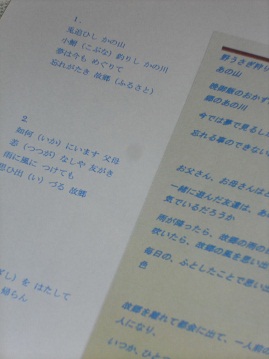 1.
兎追ひし かの山
小鮒 (こぶな) 釣りし かの川
夢は今も めぐりて
忘れがたき 故郷 (ふるさと)
2
如何 (いか) にいます 父母
恙 (つつが) なしや 友がき
雨に風に つけても
思ひ出 (い) づる 故郷
を はたして
帰らん
野うさぎ狩り
あの山
晩御飯のおかず
郷のあの川
今では夢で見るし
忘れる事のできない
お父さん、お母さんは
一緒に遊んだ友達は、
気でいるだろうか
雨が降ったら、故郷の雨の
吹いたら、故郷の風を思い出
毎日の、ふとしたことで思い出
色
故郷を離れて都会に出て、一人前
人になり、
いつか、